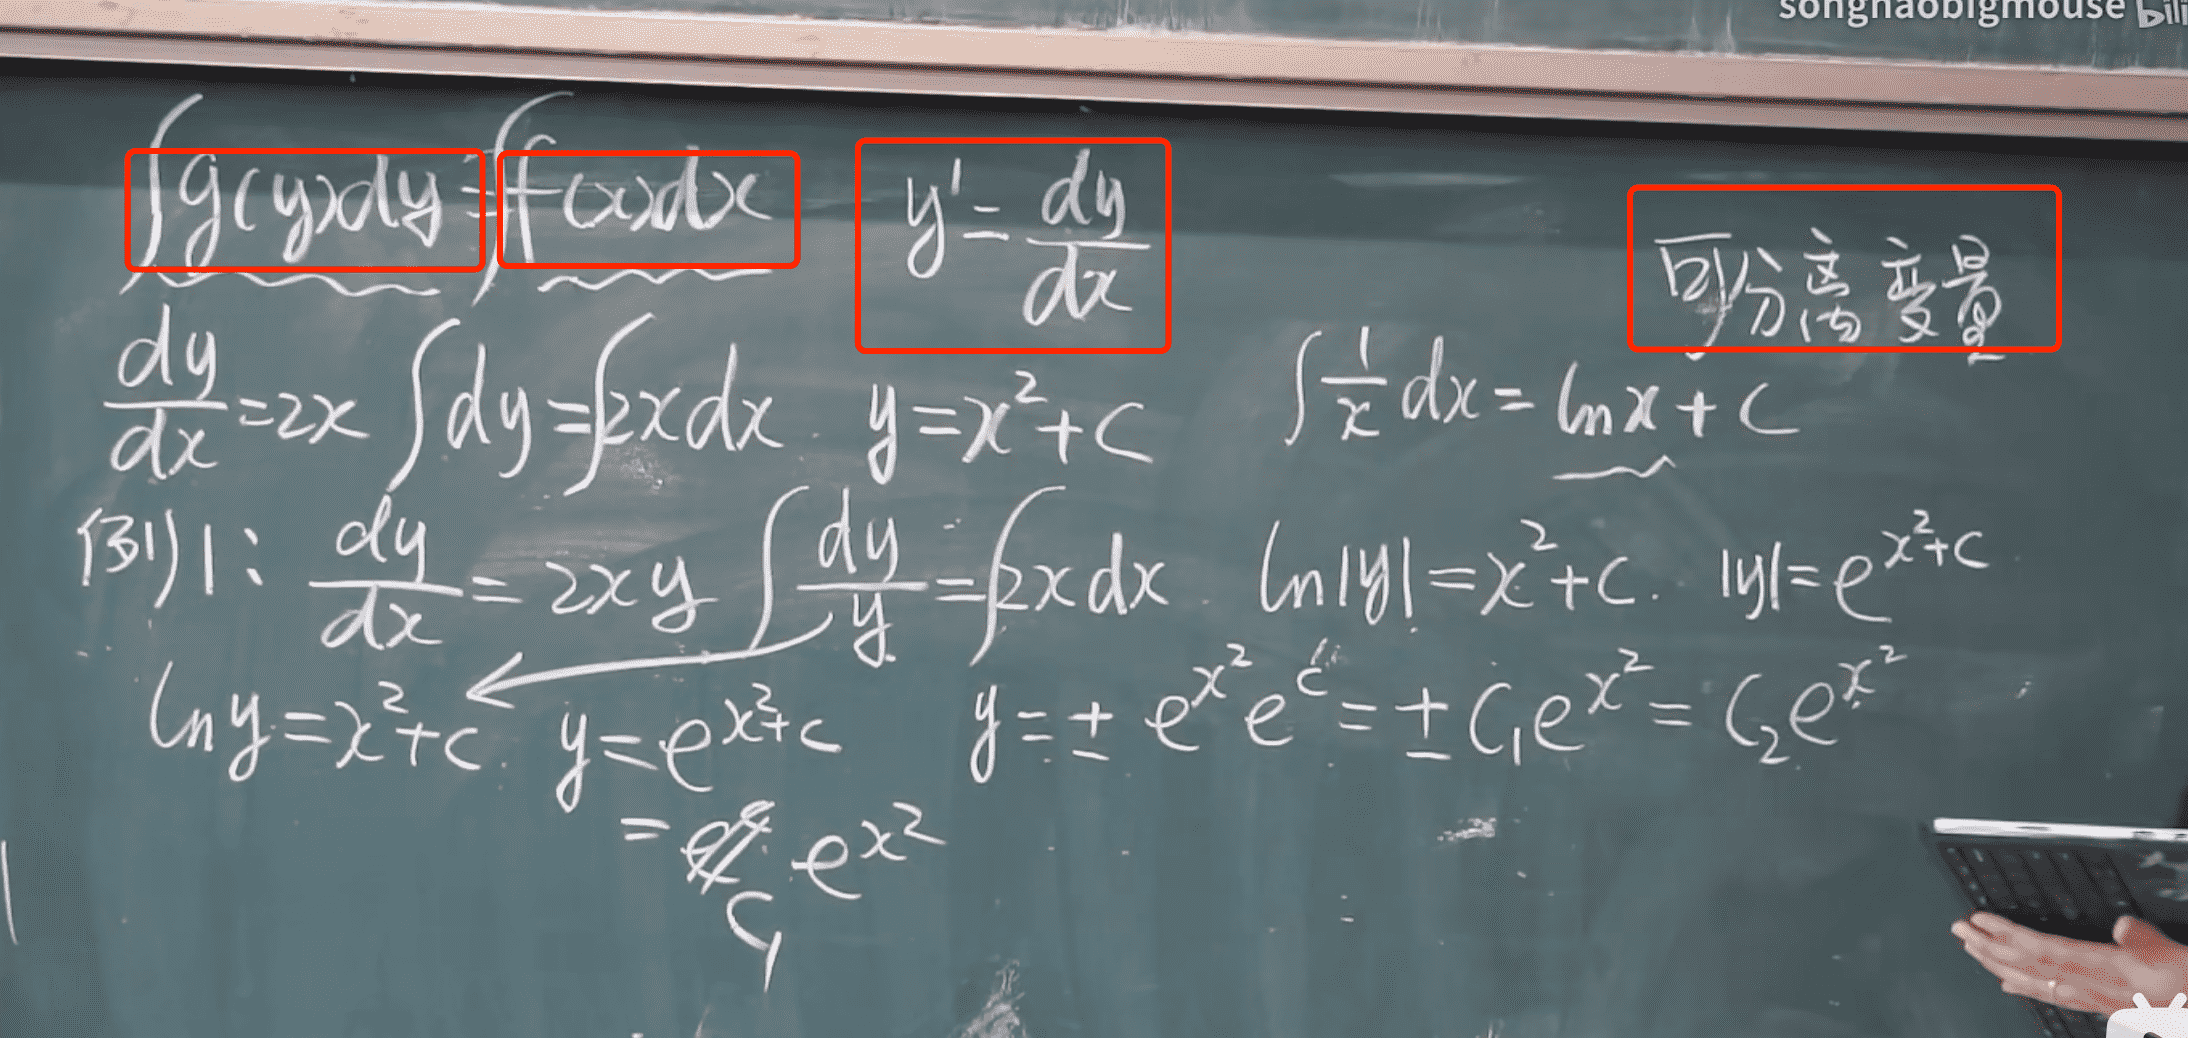 songhaobigmouse bili
∫g(y)dy = ∫f(x)dx y' = dy/dx 可分离变量
dy/dx = 2x ∫dy = ∫2xdx. y = x²+c ∫1/x dx = lnx + c
例1: dy/dx = 2xy ∫dy/y = ∫2xdx. ln|y| = x²+c. |y| = e^(x²+c)
lny = x²+c. y = e^(x²+c) y = ± e^(x²) e^c = ± C₁e^(x²) = C₂e^(x²)
= C₁ e^(x²)